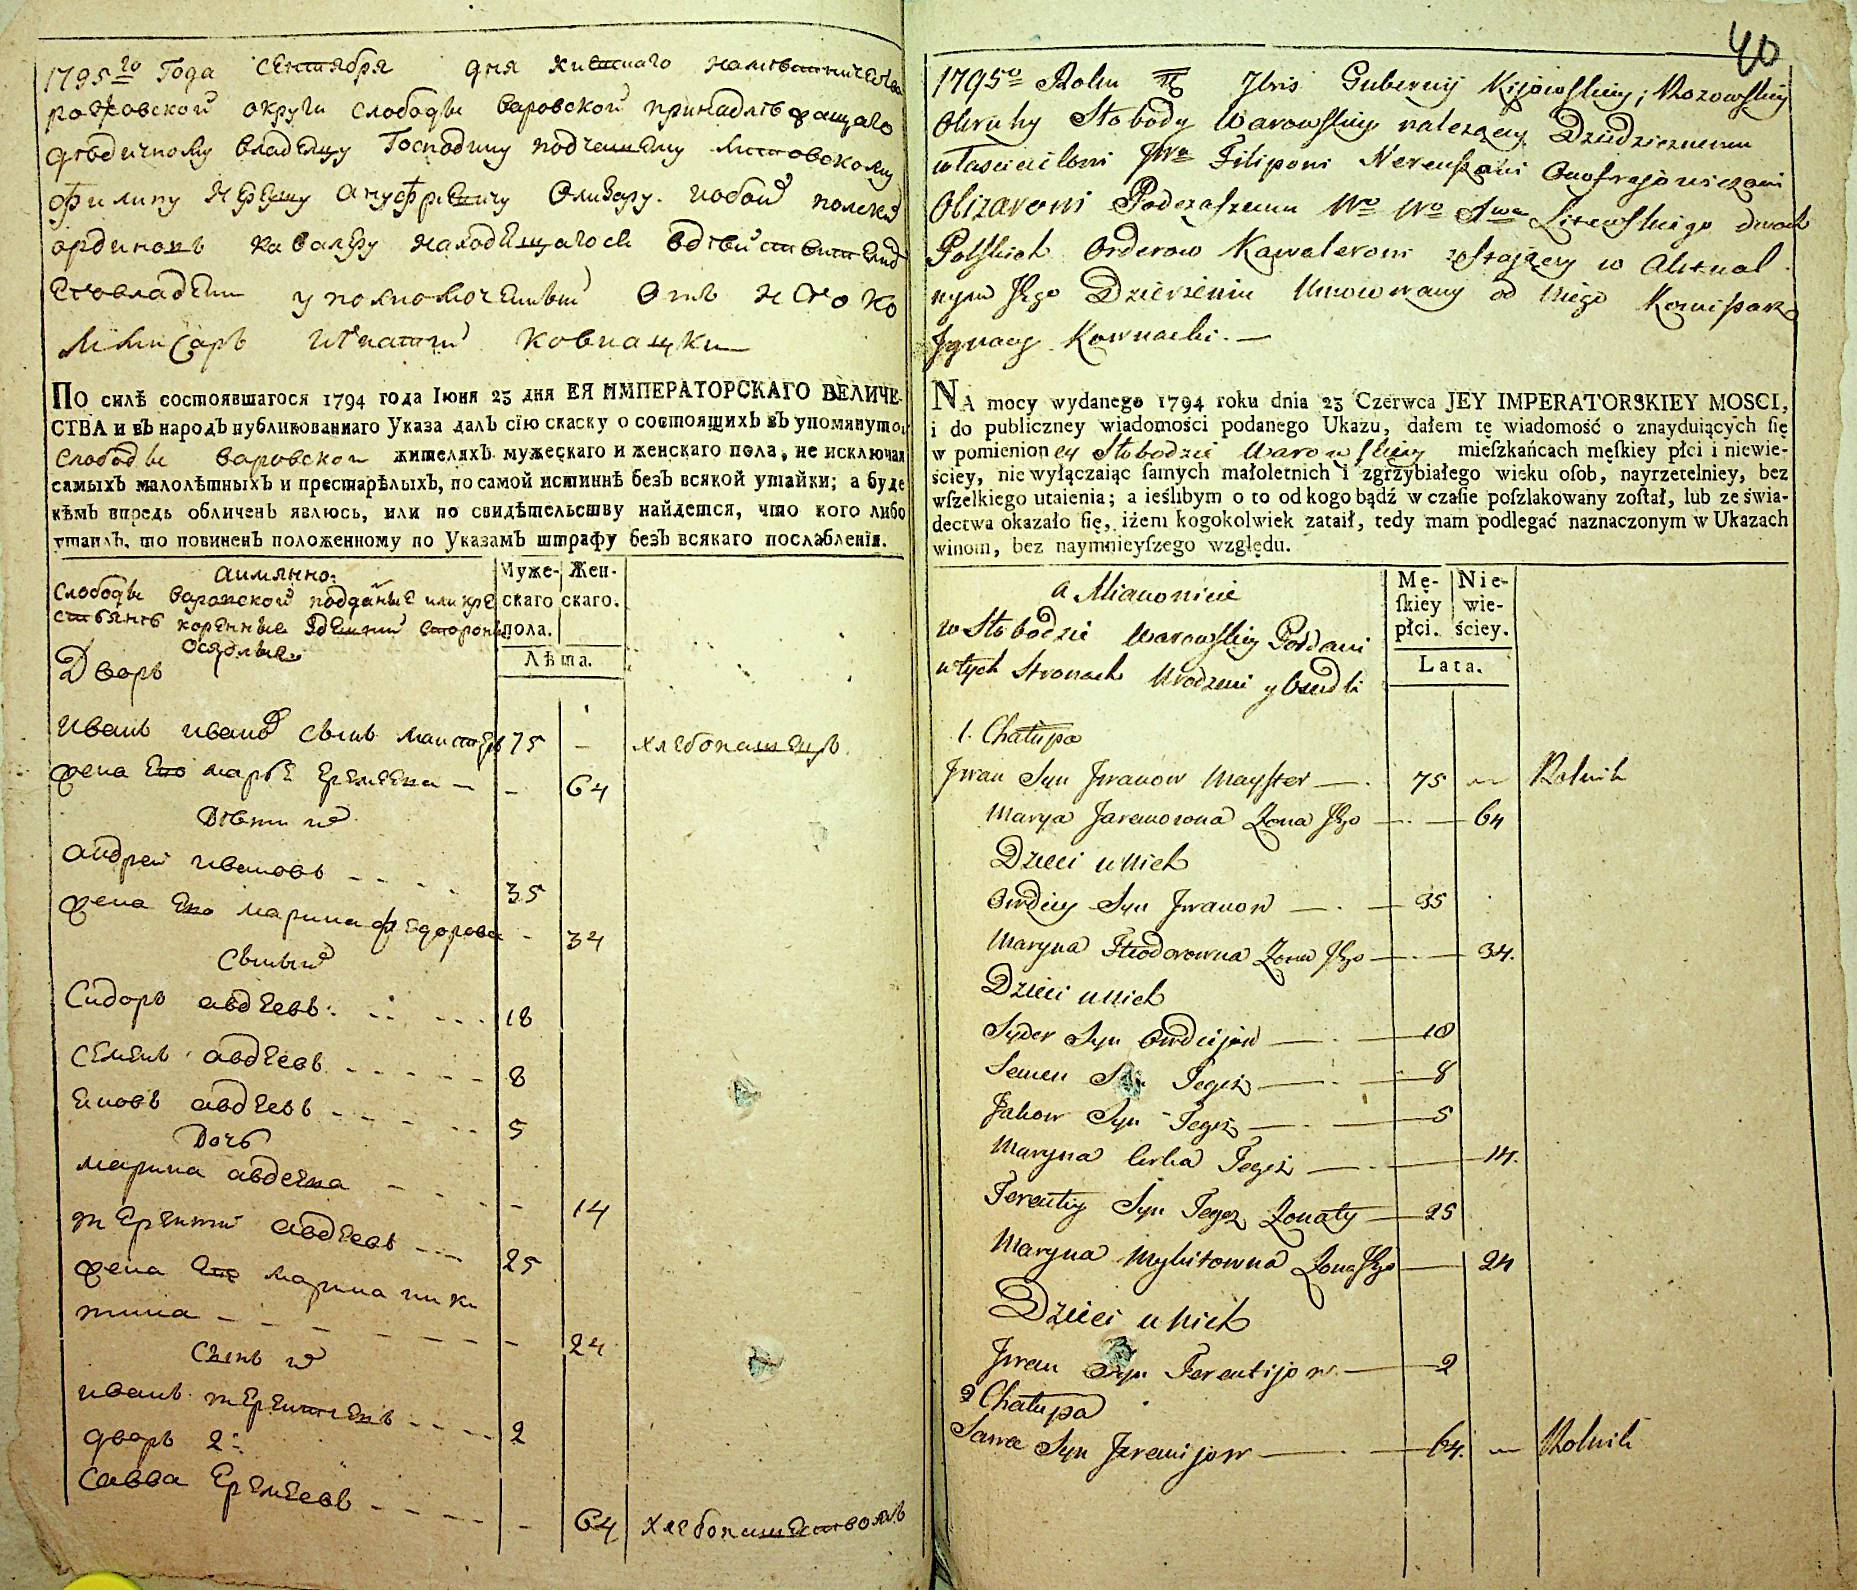 1795го Года сентября дня киевскаго наместничества
округи слободы Варовской принадлежащаго
владельцу Господину подчашему литовскому
Филипу Нерещу Ануфриевичу Олизару. и обои полскихъ
ординовъ кавалеру находящагося в действителномъ
его владении уполномоченный отъ него ко
миссаръ Игнатий Ковнацки
По силѣ состоявшагося 1794 года Iюня 23 дня ЕЯ ИМПЕРАТОРСКАГО ВЕЛИЧЕ-
СТВА и въ народъ публикованнаго Указа далъ сїю скаску о состоящихъ въ упомянутой
Слободы Варовской жителяхъ мужескаго и женскаго пола, не исключая
самыхъ малолѣтныхъ и престарѣлыхъ, по самой истиннѣ безъ всякой утайки; а буде
кѣмъ впредь обличенъ явлюсь, или по свидѣтельству найдется, что кого либо
утаилъ, то повиненъ положенному по Указамъ штрафу безъ всякаго послабленїя.
аимянно:
Слободы Варовской подданые или кре
стьянъ коренные здешней стороны
оседлые
Муже-
скаго
пола.
Жен-
скаго.
Лѣта.
Дворъ
иванъ ивановъ сынъ маистеръ 75 – хлебопашецъ
жена его марья еремеева – – 64
Дети их
андреи ивановъ 35
жена его марина федорова – 34
сыны их
Сидоръ авдеевъ 18
семенъ авдеевъ 8
яковъ авдеевъ 5
Дочь
марина авдеева – 14
терентий авдеевъ 25
жена его марина ники
тина – 24
Сынъ их
иванъ терентиевъ 2
дворъ 2й
савва еремеевъ – 64 хлебопашествомъ
40
1795o Roku 7bris Gubernij Kijowskiey;
Okruhy Słobody Warowskiey należącey Dziedzicznemu
włascicilowi Filipowi Nereuszowi Onofrejowiczowi
Olizarowi Podczaszemu Litewskiego dwoch
Polskich Orderow Kawalerowi zostaiącey w Aktual
nym Jego Dzierżeniu Umocowany od Niego Komisarz
Jgnacy Kownacki. —
NA mocy wydanego 1794 roku dnia 23 Czerwca JEY IMPERATORSKIEY MOSCI,
i do publiczney wiadomości podanego Ukazu, dałem tę wiadomość o znayduiących ſię
w pomienioney Słobodzie Warowskiey mieſzkańcach męſkiey płci i niewie-
ściey, nie wyłączaiąc ſamych małoletnich i zgrzybiałego wieku oſob, nayrzetelniey, bez
wſzelkiego utaienia; a ieślibym o to od kogo bądź w czaſie poſzlakowany zoſtał, lub ze świa-
dectwa okazało ſię, iżem kogokolwiek zataił, tedy mam podlegać naznaczonym w Ukazach
winom, bez naymnieyſzego względu.
a Mianowicie
w Słobodzie Warowskiey Poddani
w tych Stronach Urodzeni y Osiedli
Mę-
ſkiey
płci.
Nie-
wie-
ściey.
Lata.
1. Chałupa
Jwan Syn Jwanow Mayster — 75 — Rolnik
Marya Jaremowna Żona Jego — 64
Dzieci u Nich
Owdiey Syn Jwanow — 35
Maryna Fteodorowna Żona Jego — 34.
Dzieci u Nich
Syder Syn Owdiejow — 18
Semen Syn Tegoż — 8
Jakow Syn Tegoż — 5
Maryna Corka Tegoż — 14.
Terentiy Syn Tegoż Żonaty — 25
Maryna Mykitowna Żona Jego — 24
Dzieci u Nich
Jwan Syn Terentijow — 2
2 Chałupa
Sawa Syn Jeremijow — 64. — Rolnik